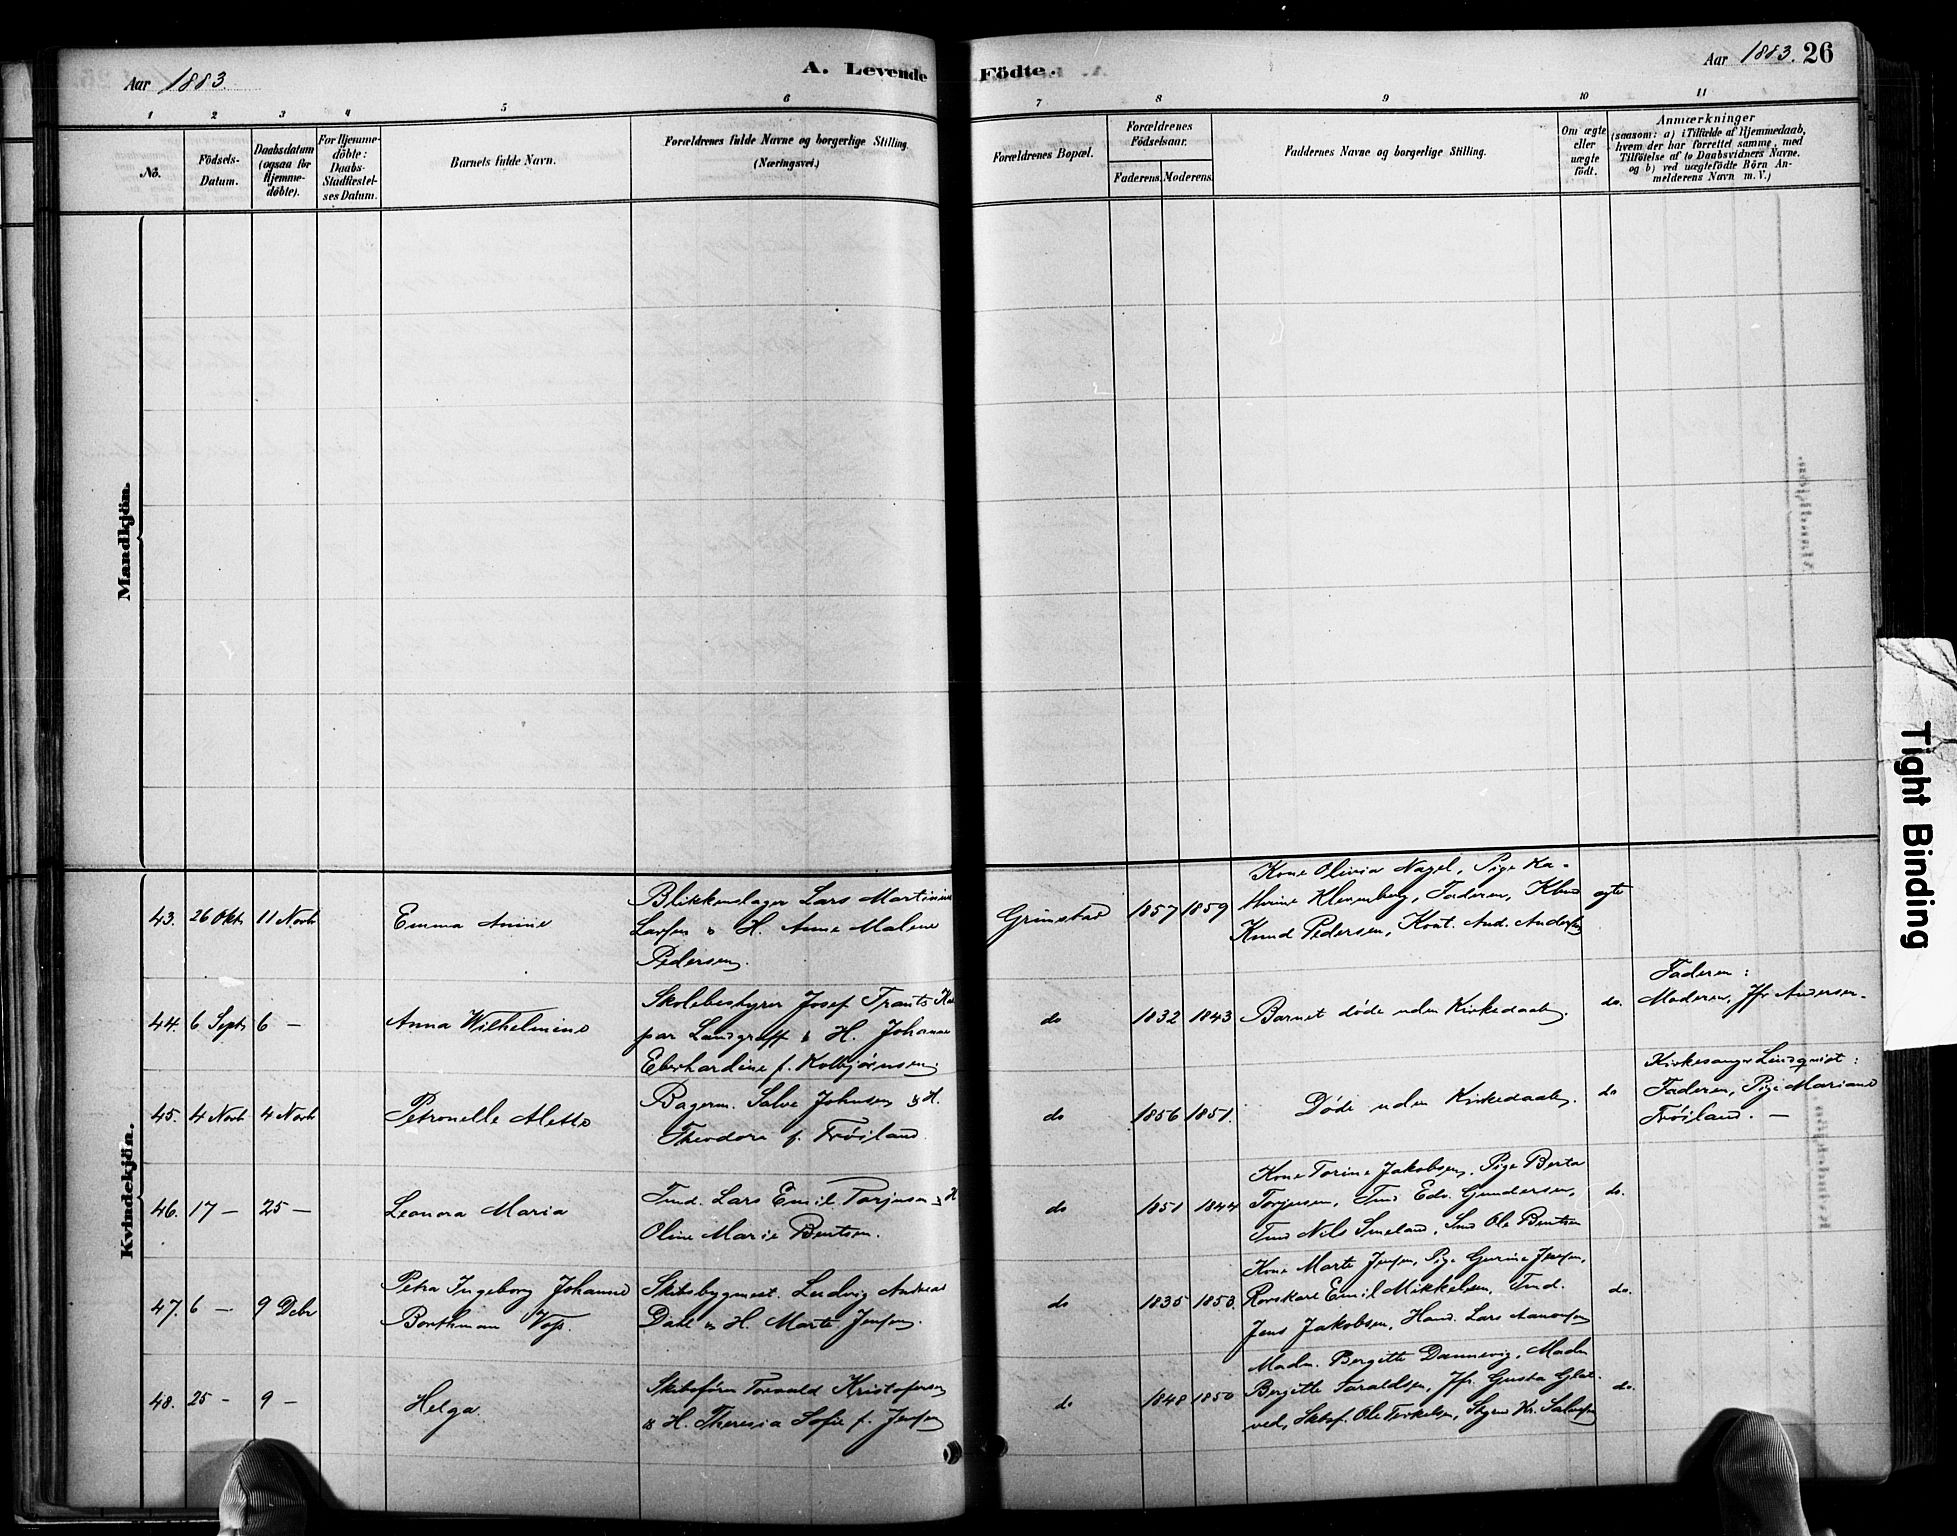 Aar 1883.
A. Levende
Födte.
Aar 1883. 26
1 2 3 4 5 6 7 8 9 10 11
No.
Födsels-
Datum.
Daabsdatum
(ogsaa for
Hjemme-
döbte).
For Hjemme-
döbte:
Daabs-
Stadfæstel-
ses Datum.
Barnets fulde Navn.
Forældrenes fulde Navne og borgerlige Stilling.
(Næringsvei.)
Forældrenes Bopæl.
Forældrenes
Födselsaar.
Faderens. Moderens.
Faddernes Navne og borgerlige Stilling.
Om ægte
eller
uægte
födt.
Anmærkninger
(saasom: a) i Tilfælde af Hjemmedaab,
hvem der har forrettet samme, med
Tilföielse af to Daabsvidners Navne.
og b) ved uægtefödte Börn An-
melderens Navn m. V.)
Mandkjön.
Kvindekjön.
43. 26 Okt. 11 Novb
Emma Anine
Blikkenslager Lars Martinius
Larsen & H. Anne Malene
Pedersen.
Grimstad
1857 1859
Kone Olivia Nagel, Pige Ka-
thrine Klemmberg, Faderen,
Knud Pedersen, And. Andersen
ægte
44. 6 Septr 6 —
Anna Wilhelmine
Skolebestyrer Josef Frants Kas
par Landgraff & H. Johanne
Eberhardine f. Kolbjørnsen
do
1832 1843
Barnet døde uden Kirkedaab.
do.
Faderen:
Moderen, Jfr Andersen.
45. 4 Novb 4 Novb
Petronelle Alette
Bagerm. Salve Johnsen & H.
Theodora f. Frøisland.
do
1856 1851.
Døde uden Kirkedaab.
do
Kirkesanger Lindquist:
Faderen, Pige Mariane
Frøisland. —
46. 17 — 25 —
Leonora Maria
Tmd. Lars Emil Torjusen & H
Oline Marie Bentsen.
do
1851 1844
Kone Torine Jakobsen, Pige Berta
Torjusen, Tmd Edv. Gundersen,
Tmd Nils Smeland, Smd Ole Bentsen
do.
47. 6 — 9 Debr
Petra Ingeborg Johanne
Borthman Voss.
Skibsbygmest. Ludvig Andreas
Dahl & H. Marte Jensen.
do
1835 1853.
Kone Marte Jensen, Pige Gurine Jensen,
Emil Mikkelsen, Tmd.
Jens Jakobsen, Hand. Lars Aanonsen
do.
48. 25 - 9 —
Helga.
Skibsfører Torvald Kristofersen
& H. Theresia Sofie f. Jensen
do
1848 1850
Madm. Bergitte Dannevig, Madm
Bergitte Taraldsen, Jfr. Gusta Glat-
ved, Skbsf. Ole Terkelsen, Styrm Kr. Salvesen
do.
Tight Binding